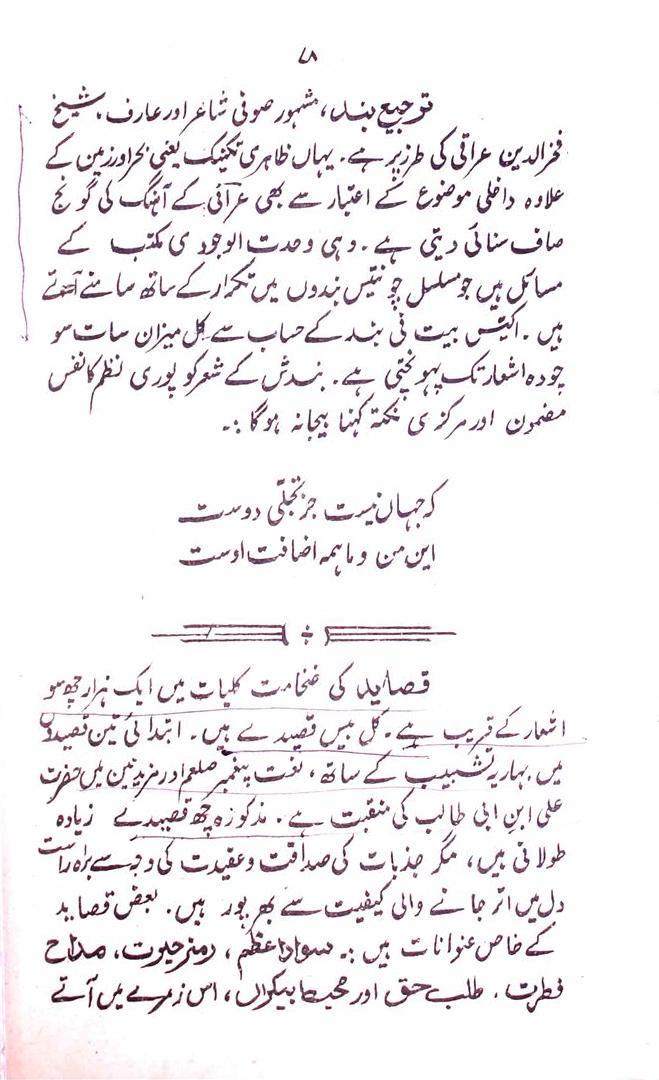 ۷۸
ترجیع بند، مشہور صوفی شاعر اور عارف، شیخ
فخرالدین عراقی کی طرز پر ہے۔ یہاں ظاہری تکنیک یعنی بحر اور زمین کے
علاوہ داخلی موضوع کے اعتبار سے بھی عراقی کے آہنگ کی گونج
صاف سنائی دیتی ہے۔ وہی وحدت الوجودی مکتب کے
مسائل ہیں جو مسلسل چونتیس بندوں میں تکرار کے ساتھ سامنے آتے
ہیں۔ اکیس بیت فی بند کے حساب سے کل میزان سات سو
چودہ اشعار تک پہونچتی ہے۔ بندش کے شعر کو پوری نظم کا نفس
مضمون اور مرکزی نکتہ کہنا بیجا نہ ہوگا :۔
کہ جہاں نیست جز تجلّی دوست
این من و ما ہمہ اضافت اوست
قصاید کی ضخامت کلیات میں ایک ہزار چھ سو
اشعار کے قریب ہے۔ کل بیس قصیدے ہیں۔ ابتدائی تین قصیدوں
میں بہاریہ تشبیب کے ساتھ، نعت پیغمبر صلعم اور مزید تین میں حضرت
علی ابن ابی طالب کی منقبت ہے۔ مذکورہ چھ قصیدے زیادہ
طولانی ہیں، مگر جذبات کی صداقت و عقیدت کی وجہ سے براہ راست
دل میں اتر جانے والی کیفیت سے بھر پور ہیں۔ بعض قصاید
کے خاص عنوانات ہیں :۔ سواد اعظم، رمز حیوت، مداح
فطرت، طلب حق اور محیط بیکراں، اس زمرے میں آتے